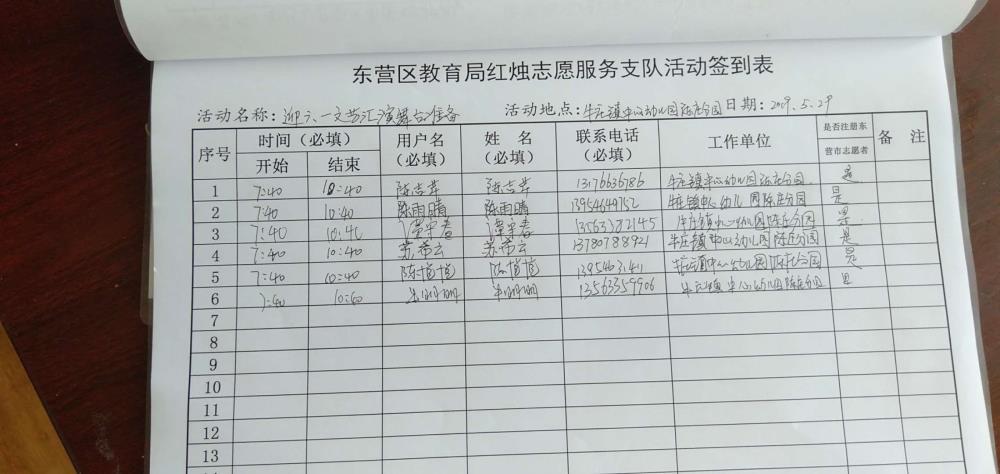 东营区教育局红烛志愿服务支队活动签到表
活动名称：迎六一文艺汇演舞台准备 活动地点：牛庄镇中心幼儿园陈庄分园 日期：2019.5.29
序号 时间（必填） 用户名（必填） 姓 名（必填） 联系电话（必填） 工作单位 是否注册东营市志愿者 备 注
开始 结束
1 7:40 10:40 陈志苹 陈志苹 13176636786 牛庄镇中心幼儿园陈庄分园 是
2 7:40 10:40 陈雨晴 陈雨晴 13954649752 牛庄镇中心幼儿园陈庄分园 是
3 7:40 10:40 谭守春 谭守春 13563382145 牛庄镇中心幼儿园陈庄分园 是
4 7:40 10:40 苏希云 苏希云 13780788921 牛庄镇中心幼儿园陈庄分园 是
5 7:40 10:40 陈植植 陈植植 牛庄镇中心幼儿园陈庄分园 是
6 7:40 10:40 13563359906 牛庄镇中心幼儿园陈庄分园 是
7
8
9
10
11
12